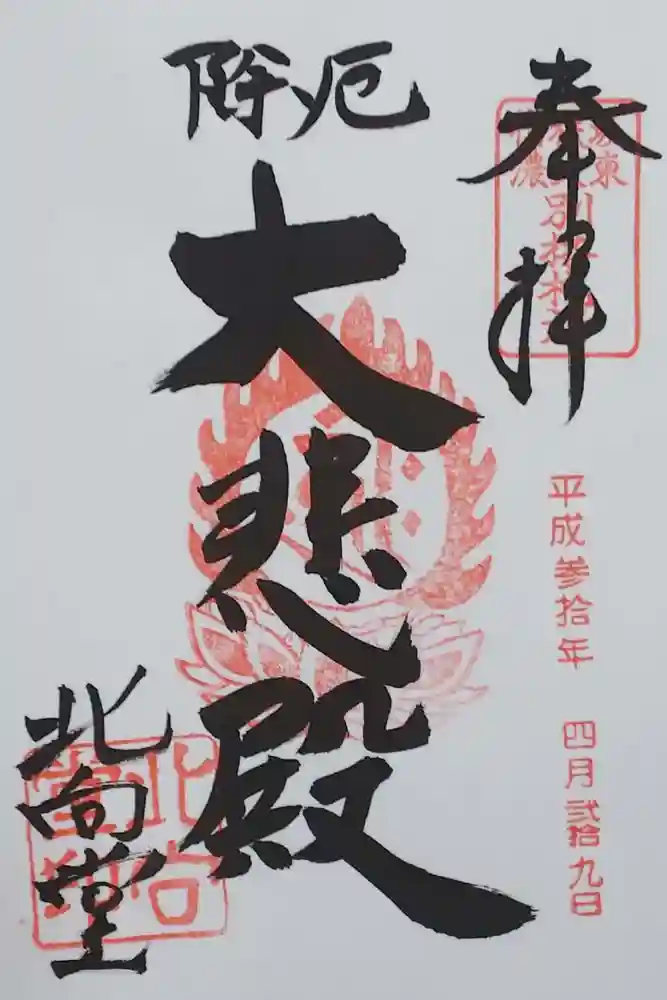 奉拝
別格札所
平成参拾年
四月弐拾九日
厄除
大悲殿
北向堂